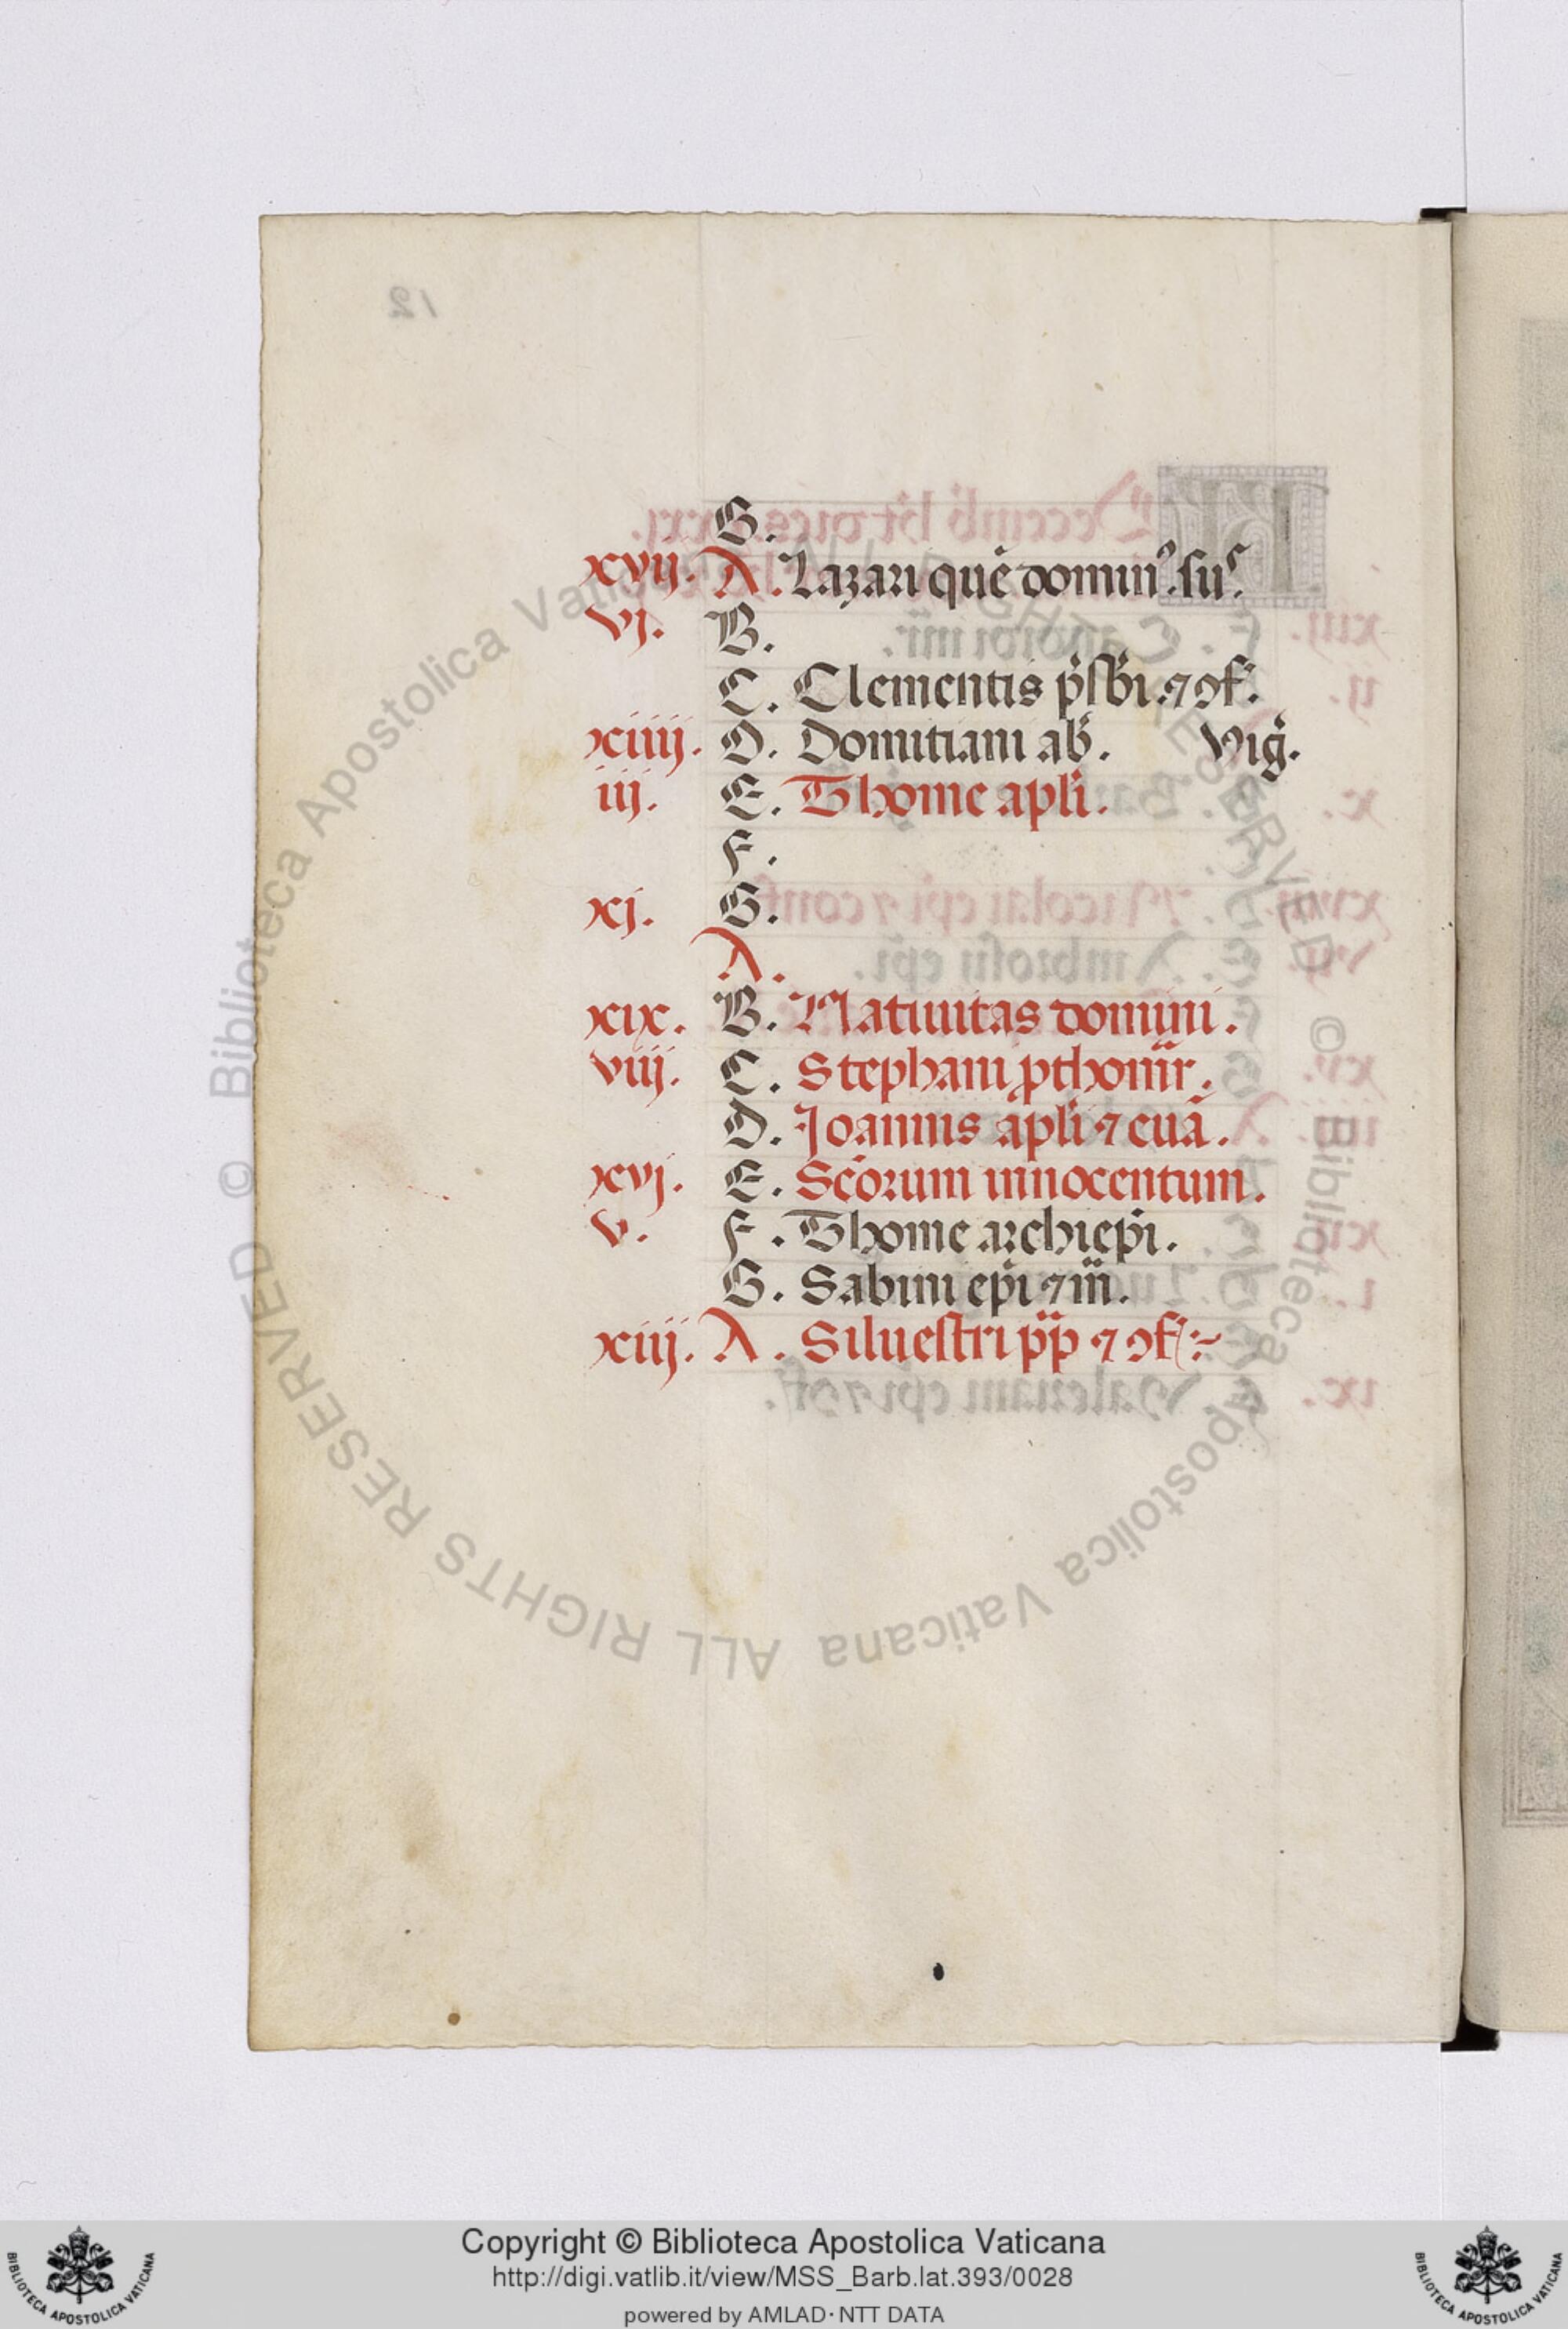 12
G.
xvij. A. Lazari quē domin⁹. sus.
vj. B.
C. Clementis p̄sb̄i. ⁊ ꝯf.
xiiij. D. Domitiani ab̄. Viḡ.
iij. E. Thome apl̄i.
F.
xj. G.
A.
xix. B. Natiuitas domini.
viij. C. Stephani ꝓthom̄r.
D. Joannis apl̄i ⁊ euā.
xvj. E. Scōrum innocentum.
v. F. Thome archiep̄i.
G. Sabini ep̄i ⁊ m̄.
xiij. A. Siluestri pp̄ ⁊ ꝯf.
© Biblioteca Apostolica Vaticana ALL RIGHTS RESERVED © Biblioteca Apostolica Vaticana ALL RIGHTS RESERVED
Copyright © Biblioteca Apostolica Vaticana
http://digi.vatlib.it/view/MSS_Barb.lat.393/0028
powered by AMLAD·NTT DATA
BIBLIOTECA APOSTOLICA VATICANA
BIBLIOTECA APOSTOLICA VATICANA